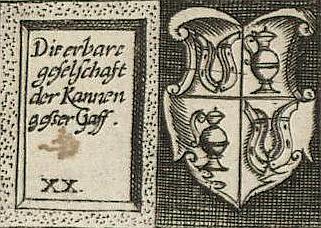 Die erbare
geselschaft
der Kannen
gesser Gaff.
XX.